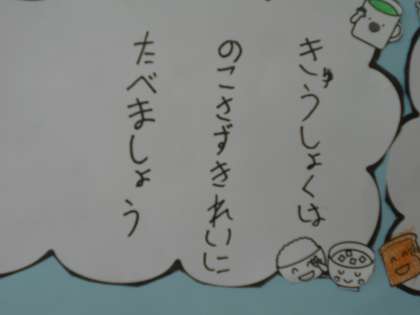 きゅうしょくは
のこさずきれいに
たべましょう